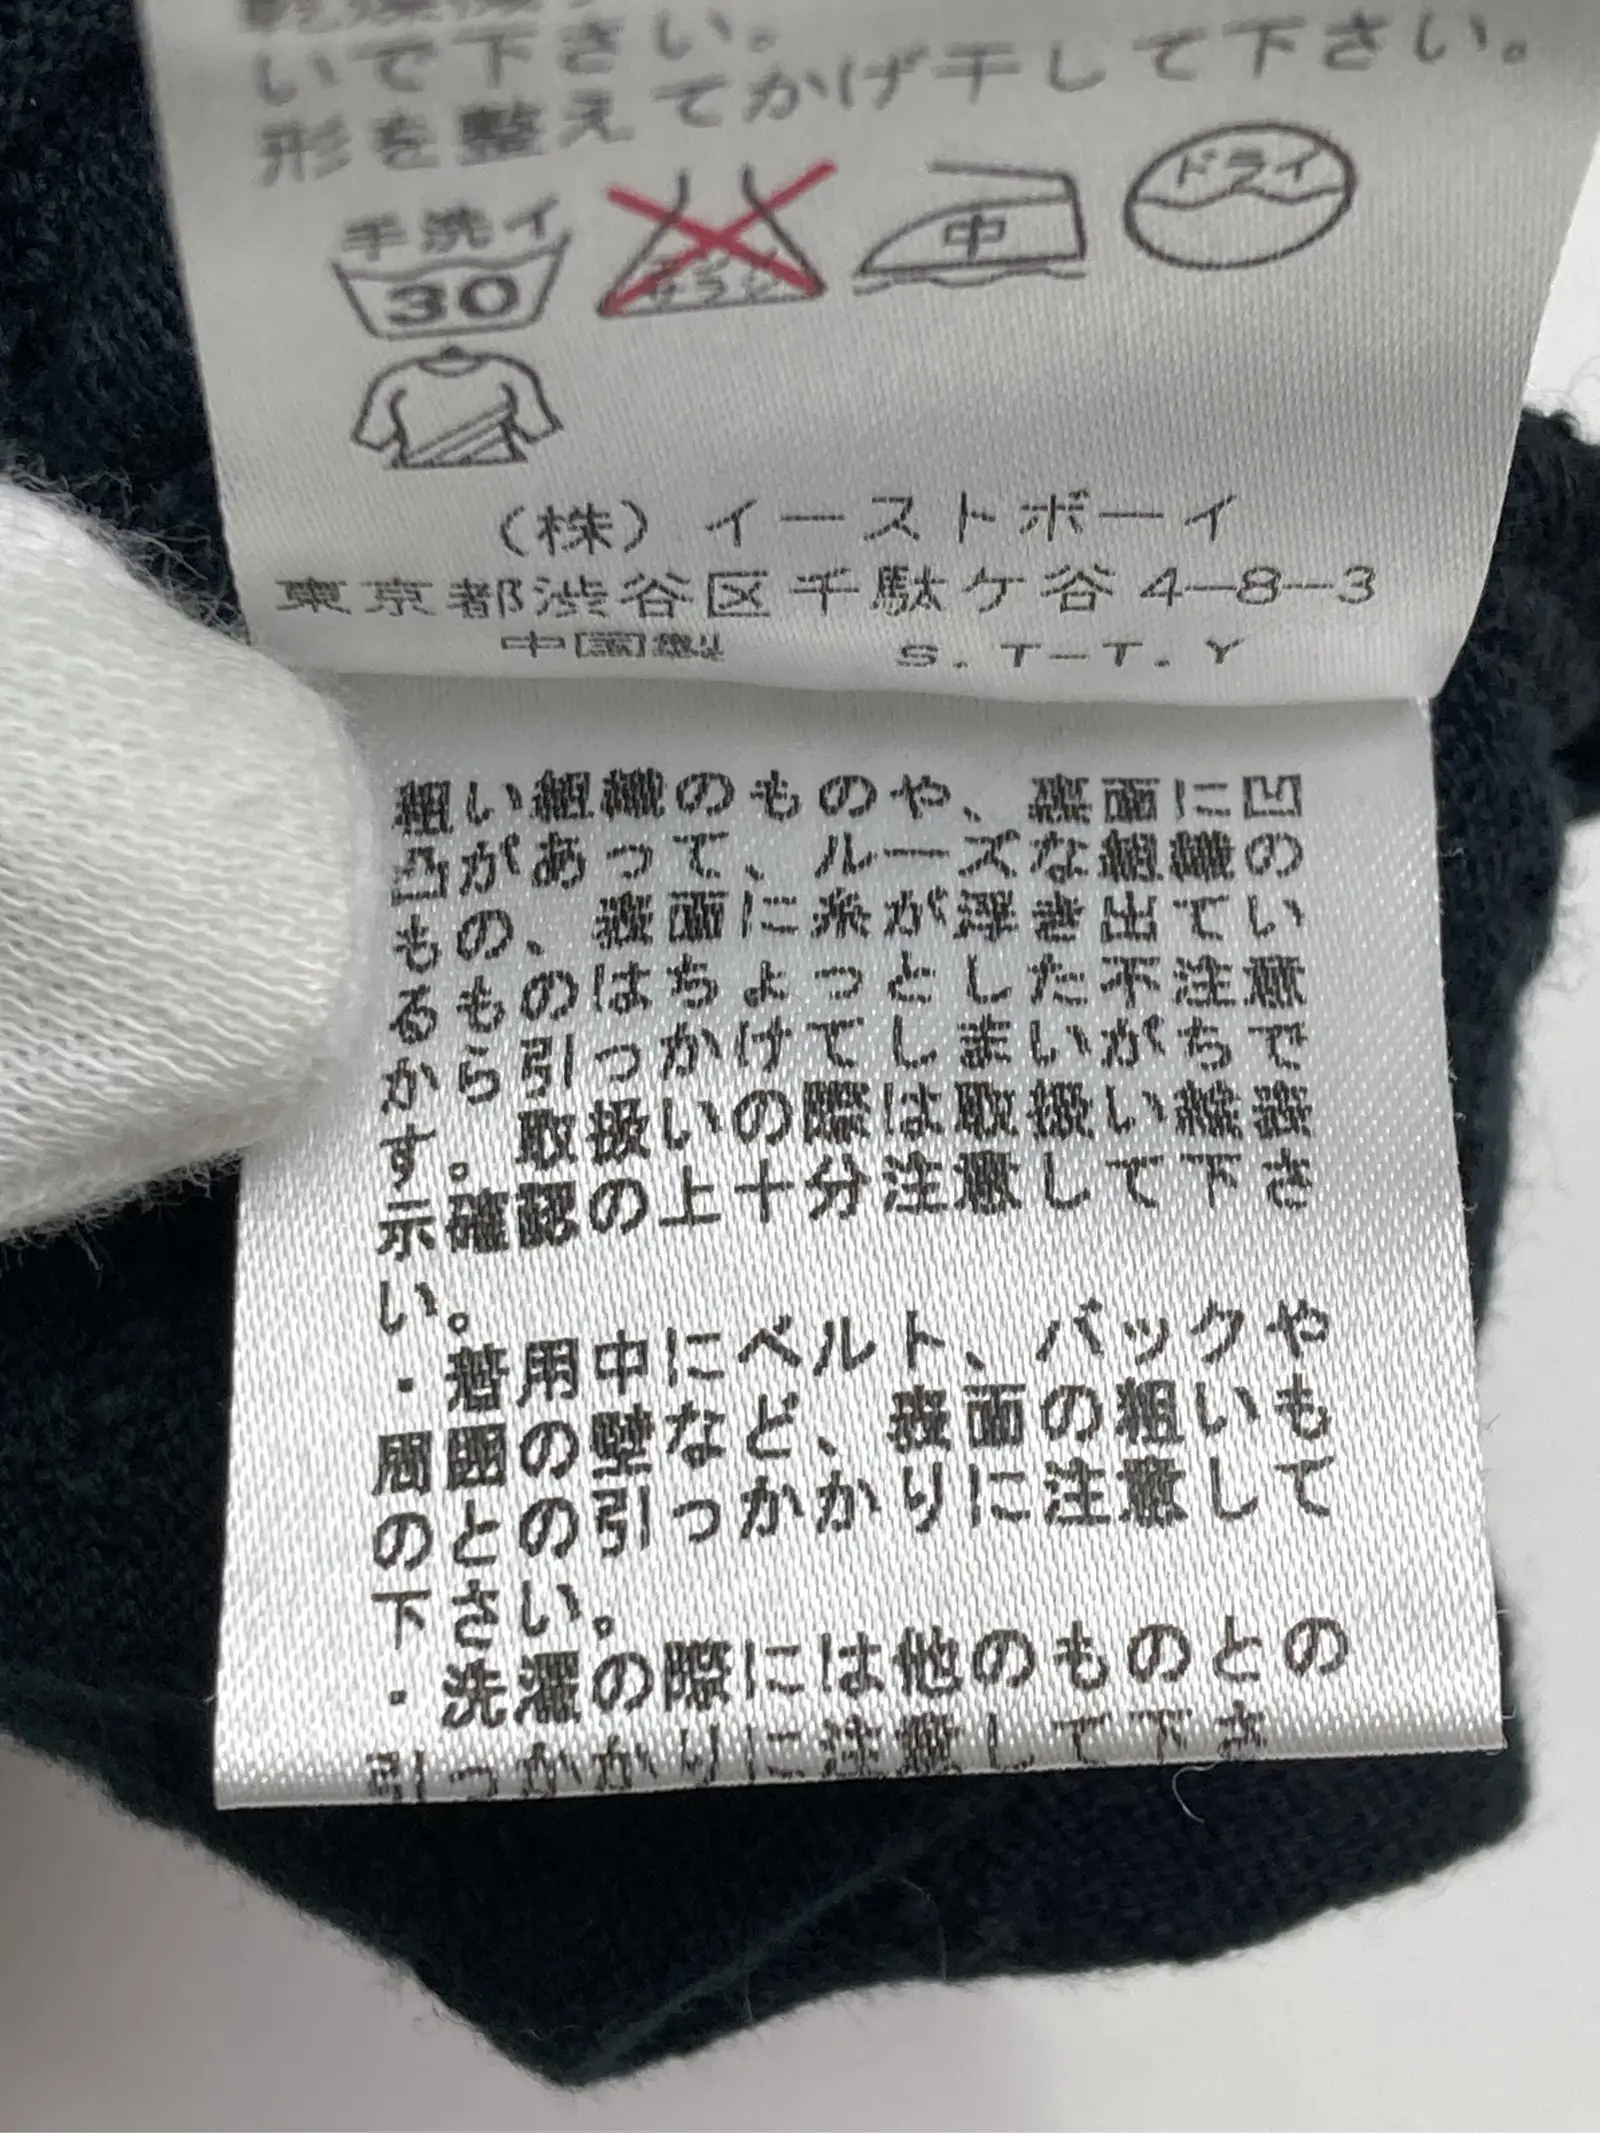 いで下さい。
形を整えてかげ干して下さい。
手洗イ
30
中
ドライ
(株)イーストボーイ
東京都渋谷区千駄ケ谷4-8-3
中国製 S.T-T.Y
粗い組織のものや、表面に凹
凸があって、ルーズな組織の
もの、表面に糸が浮き出てい
るものはちょっとした不注意
から引っかけてしまいがちで
す。取扱いの際は取扱い絵表
示確認の上十分注意して下さ
い。
・着用中にベルト、バックや
周囲の壁など、表面の粗いも
のとの引っかかりに注意して
下さい。
・洗濯の際には他のものとの
引っかかりに注意して下さ